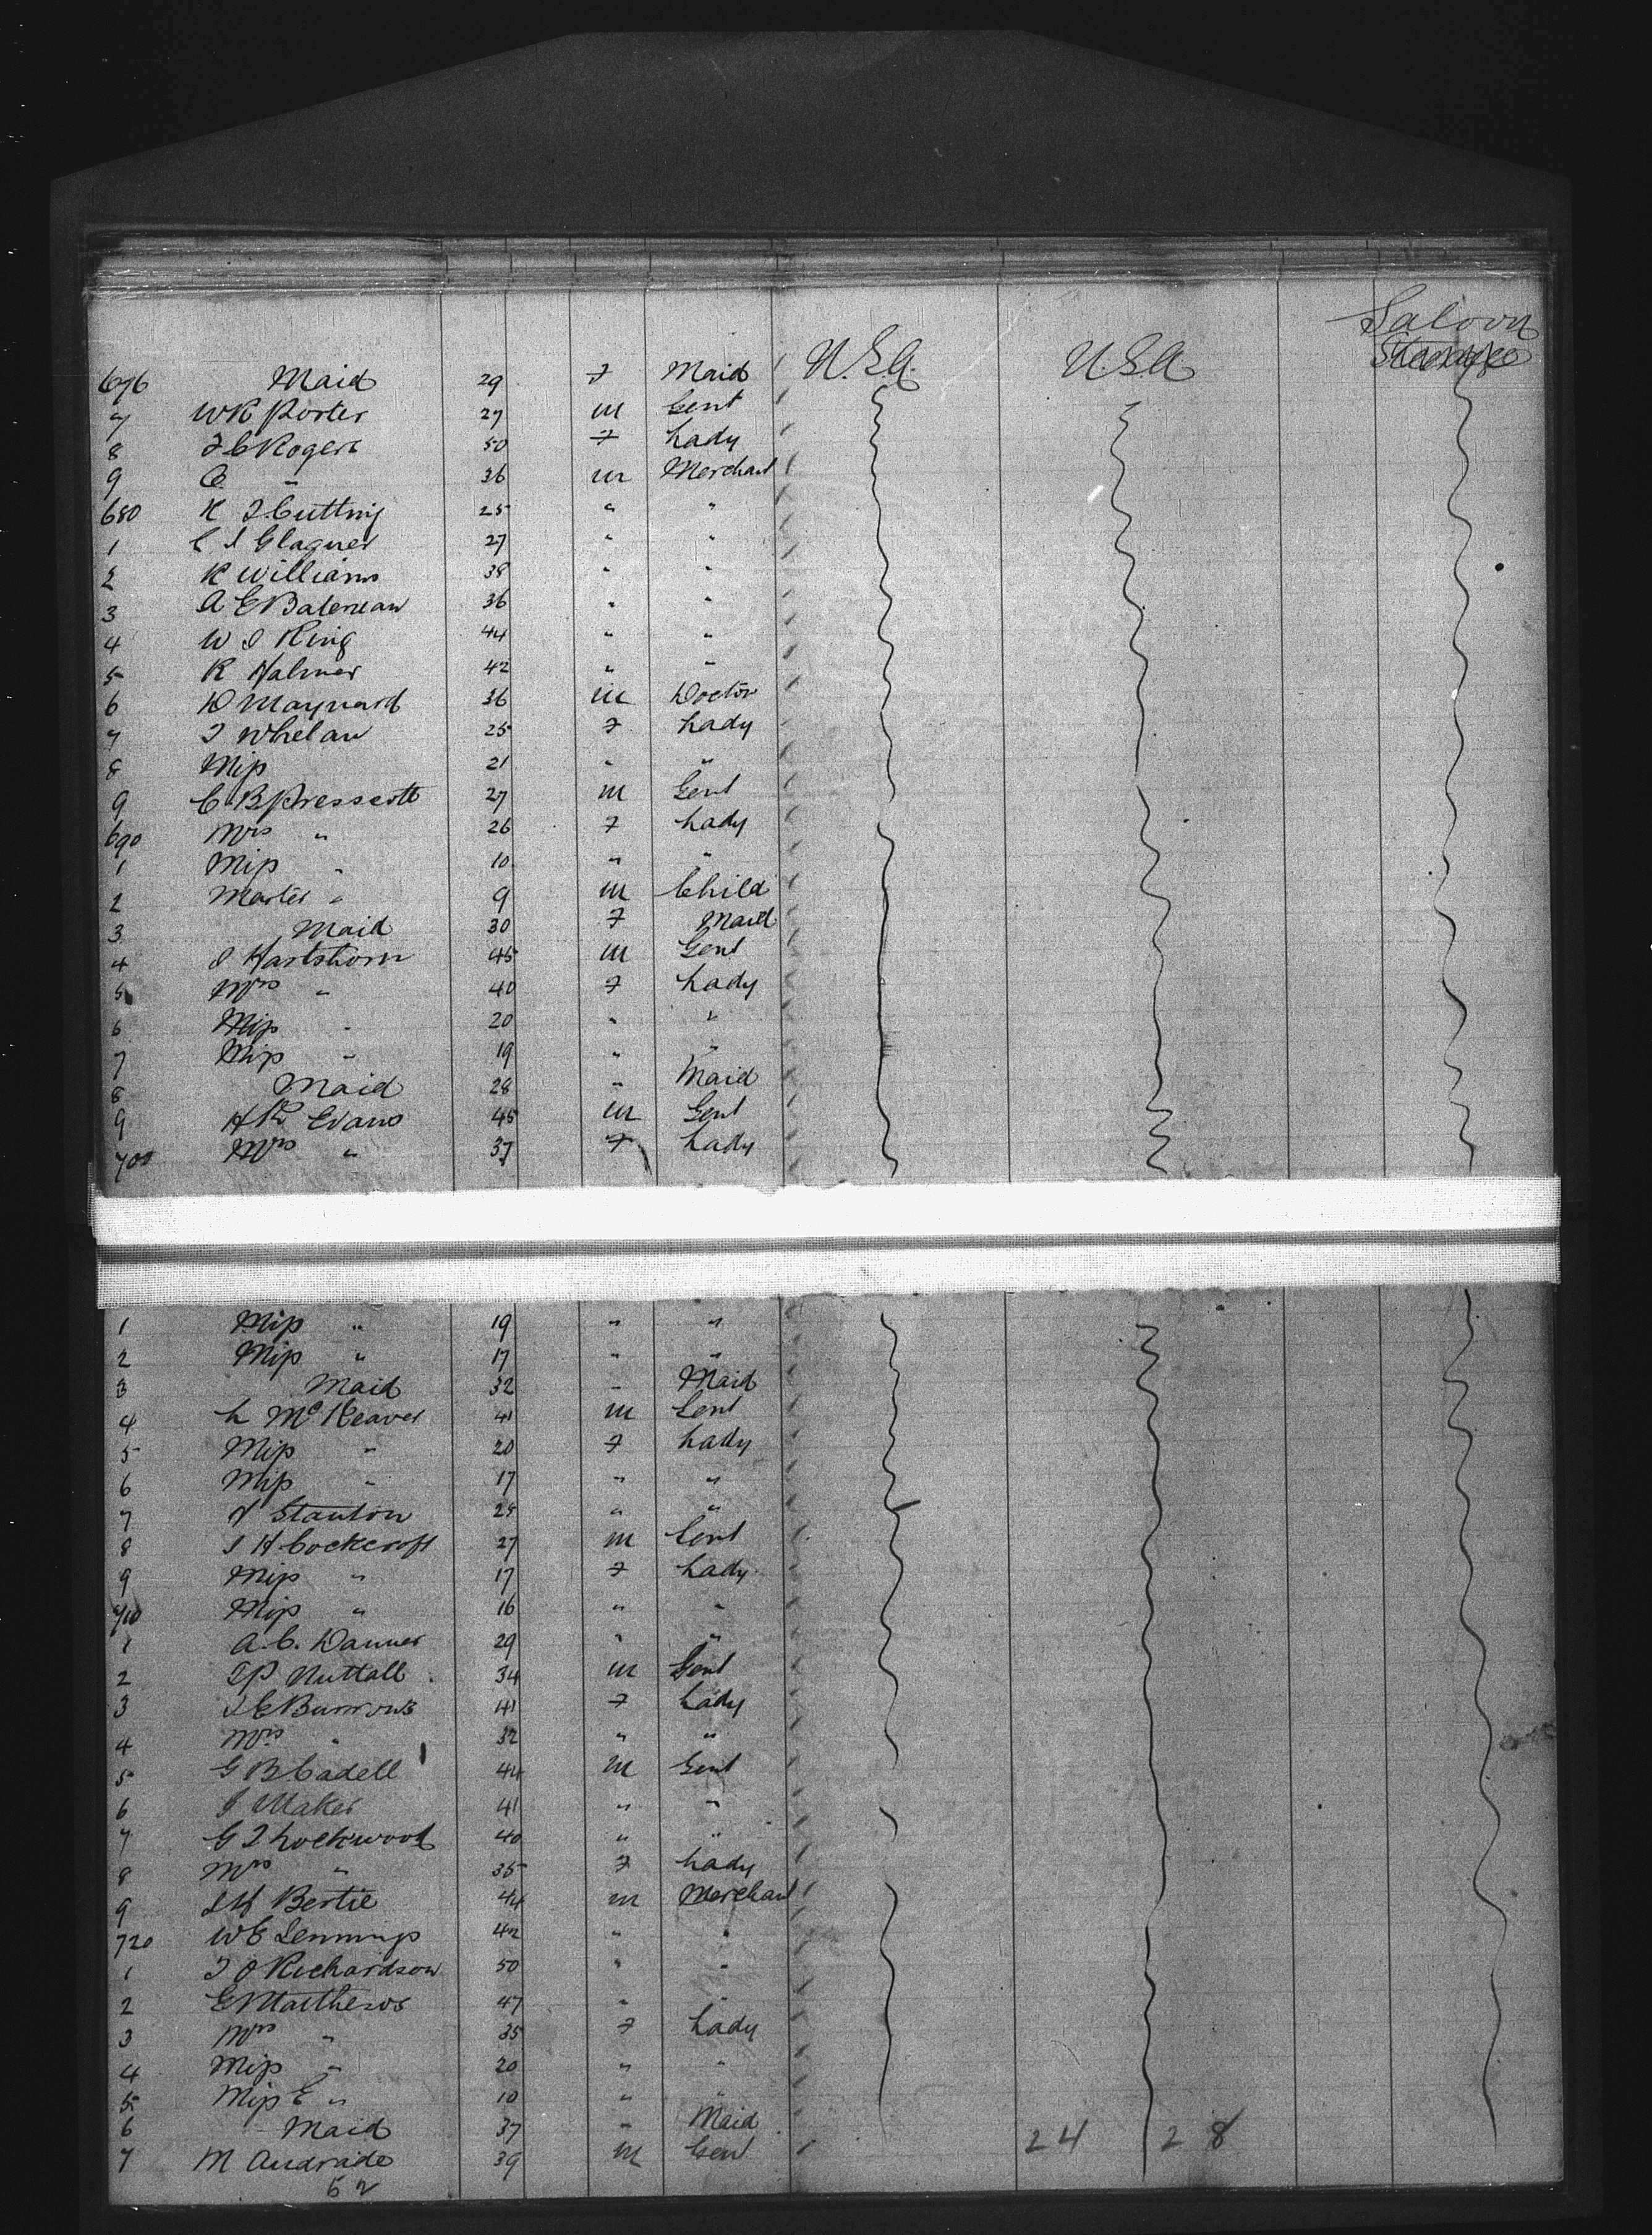 Saloon
676 Maid 29 F Maid U.S.A. U.S.A Steerage
7 WR Porter 27 m Gent
8 F C Rogers 50 F Lady
9 C " 36 m Merchant
680 K F Cutting 25 " "
1 C J Glagner 27 " "
2 R Williams 38 " "
3 A E Bateman 36 " "
4 W J King 44 " "
5 R Halmer 42 " "
6 D Maynard 36 m Doctor
7 T Whelan 25 F Lady
8 Miss 21 " "
9 C B Presscott 27 m Gent
690 Mrs " 26 F Lady
1 Miss " 10 " "
2 Master " 9 m Child
3 Maid 30 F Maid
4 J Hartshorn 45 m Gent
5 Mrs " 40 F Lady
6 Miss " 20 " "
7 Miss " 19 " "
8 Maid 28 " Maid
9 Evans 45 m Gent
700 Mrs " 37 F Lady
1 Miss " 19 " "
2 Miss " 17 " "
3 Maid 32 " Maid
4 L McKeaver 41 m Gent
5 Miss " 20 F Lady
6 Miss " 17 " "
7 Stanton " "
8 J H Cockcroft 27 m Gent
9 Miss " 17 F Lady
710 Miss " 16 " "
1 A. C. Danner 29 " "
2 T P Nuttall 34 m Gent
3 J E Burrows 41 F Lady
4 Mrs " 32 " "
5 G B Cadell 44 m Gent
6 J Maker 41 " "
7 G F Lockwood 40 " "
8 Mrs " 35 F Lady
9 Bertie 44 m Merchant
720 W E Jennings 42 " "
1 T O Richardson 50 " "
2 E Matthews 47 " "
3 Mrs " 35 F Lady
4 Miss " 20 " "
5 Miss E " 10 " "
6 Maid 37 " Maid
7 M Andrade 39 m Gent 24 28
52